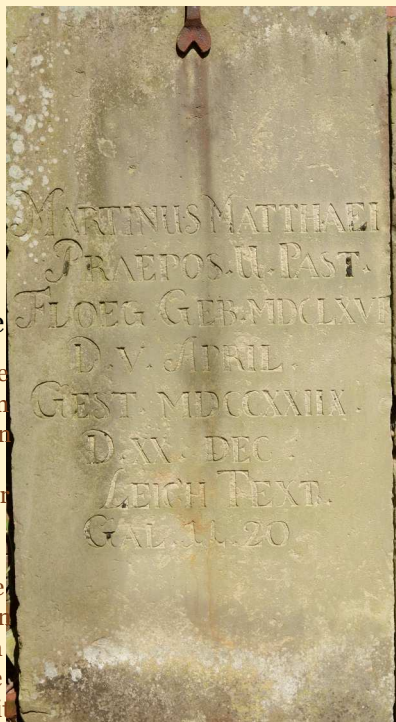 MARTINUS MATTHAEI
PRAEPOS. U. PAST.
FLOEG GEB. MDCLXVI
D. V. APRIL.
GEST. MDCCXXIIX.
D. XX. DEC.
LEICH TEXT.
GAL. 11. 20